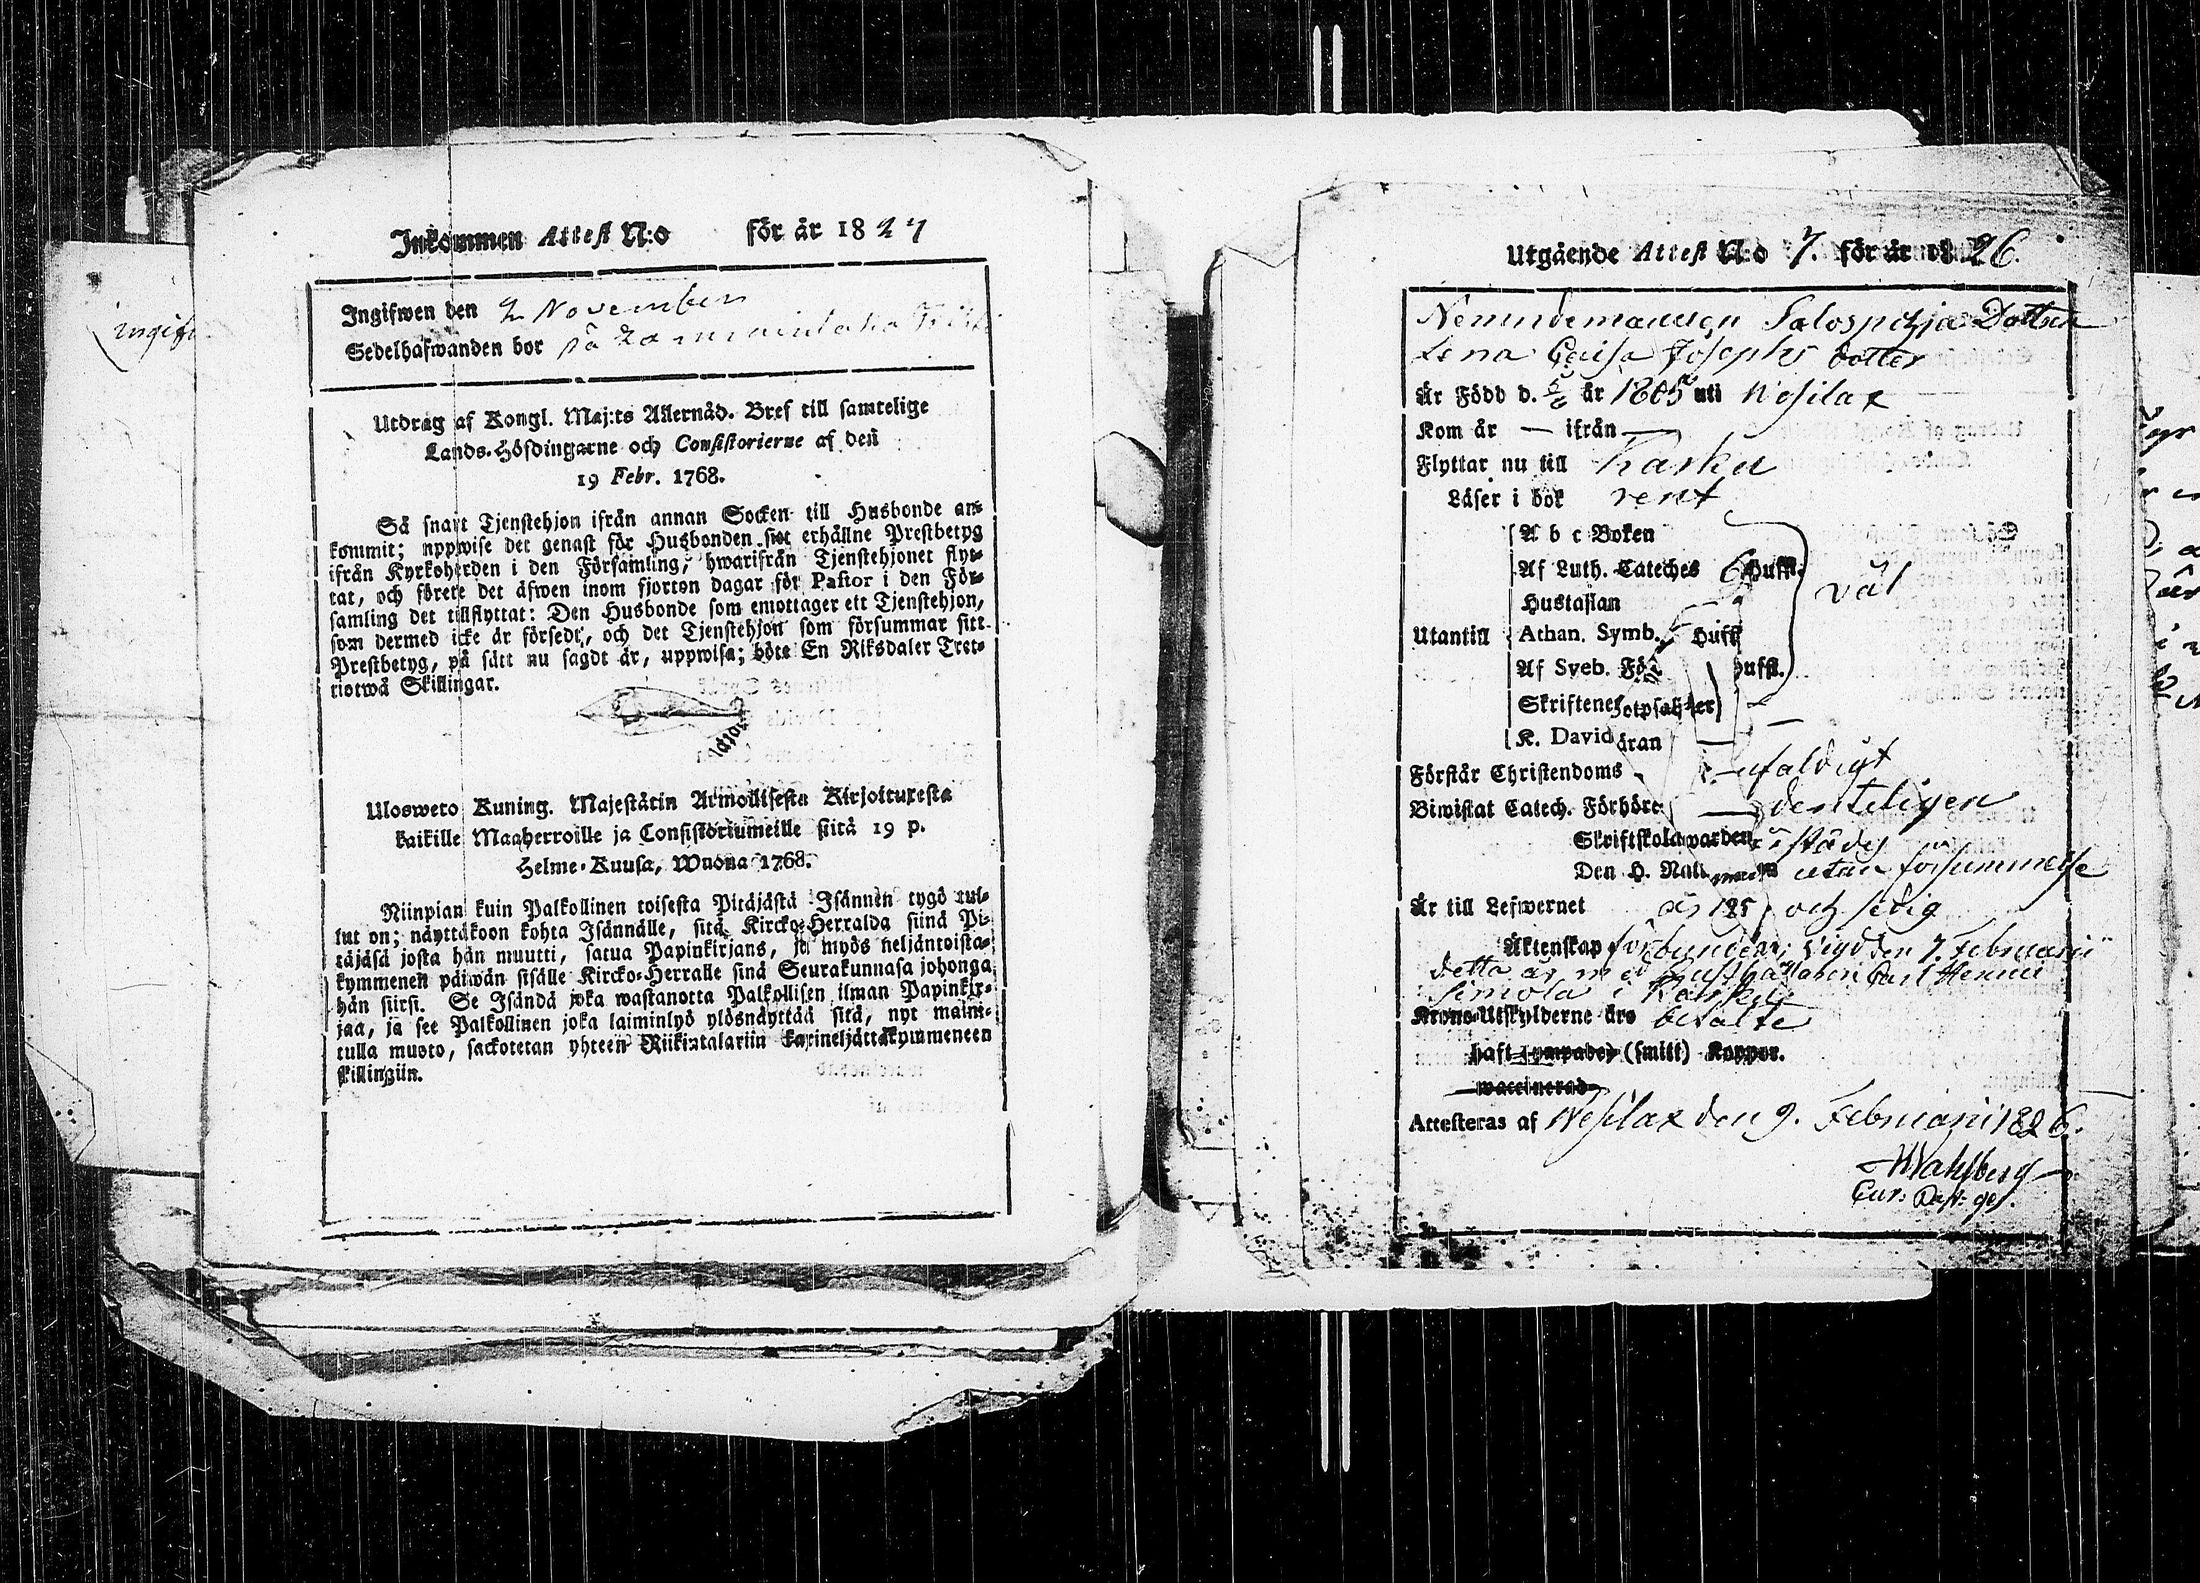 Inkommen Attest N:o för år 1827
Ingifwen den 2 November
Sedelhafwanden bor på
Utdrag af Kongl. Maj:ts Allernåd. Bref till samtelige
Lands-Höfdingarne och Consistorierne af den
19 Febr. 1768.
Så snart Tjenstehjon ifrån annan Socken till Husbonde an-
kommit; uppwise det genast för Husbonden sitt erhållne Prestbetyg
ifrån Kyrkoherden i den Församling, hwarifrån Tjenstehjonet flyt-
tat, och förete det äfwen inom fjorton dagar för Pastor i den För-
samling det tillflyttat: Den Husbonde som emottager ett Tjenstehjon,
som dermed icke är försedt, och det Tjenstehjon som försummar sitt
Prestbetyg, på sätt nu sagdt är, uppwisa; böte En Riksdaler Tret-
tiotwå Skillingar.
Ulosweto Kuning. Majestätin Armollisesta Kirjoituxesta
kaikille Maaherroille ja Consistoriumeille siitä 19 p.
Helme-Kuusa, Wuona 1768.
Niinpian kuin Palkollinen toisesta Pitäjästä Isännen tygö tul-
lut on; näyttäkoon kohta Isännälle, sitä Kircko-Herralda siinä Pi-
täjäsä josta hän muutti, satua Papinkirjans, ja myös neljäntoista-
kymmenen päiwän sisälle Kircko-Herralle sinä Seurakunnasa johonga
hän siirsi. Se Isändä joka wastanotta Palkollisen ilman Papinkir-
jaa, ja see Palkollinen joka laiminlyö ylösnäyttää sitä, nyt maini-
tulla muoto, sackotetan yhteen Riikintalariin kaxineljättäkymmeneen
skillingiin.
ingifw
Utgående Attest N:o 7. för år 1826.
Nemndemannen Salospohja Dottren
Lena Caisa Josephs dotter
Är Född d. år 1805 uti Wesilax
Kom år — ifrån —
Flyttar nu till Karku
Läser i bok rent
A b c Boken
Af Luth. Cateches Hufst.
Hustaflan
Utantill Athan. Symb. Hufst väl
Af Sveb. För hufst.
Skriftenes
K. David
Förstår Christendoms enfaldigt
Biwistat Catech. Förhören — ordenteligen
Skriftskola
Den H. Nattward utan försummelse
Är till Lefwernet och sedig
Äktenskap förbunden; Vigd den 7. Februarii
detta år med Husbonden Carl Henric
Simola i Karku
Krono-Utskylderne äro betalte
haft (smitt) Koppor.
waccinerad
Attesteras af Wesilax den 9. Februarii 1826.
Wahlberg
Cur: Past: ges.